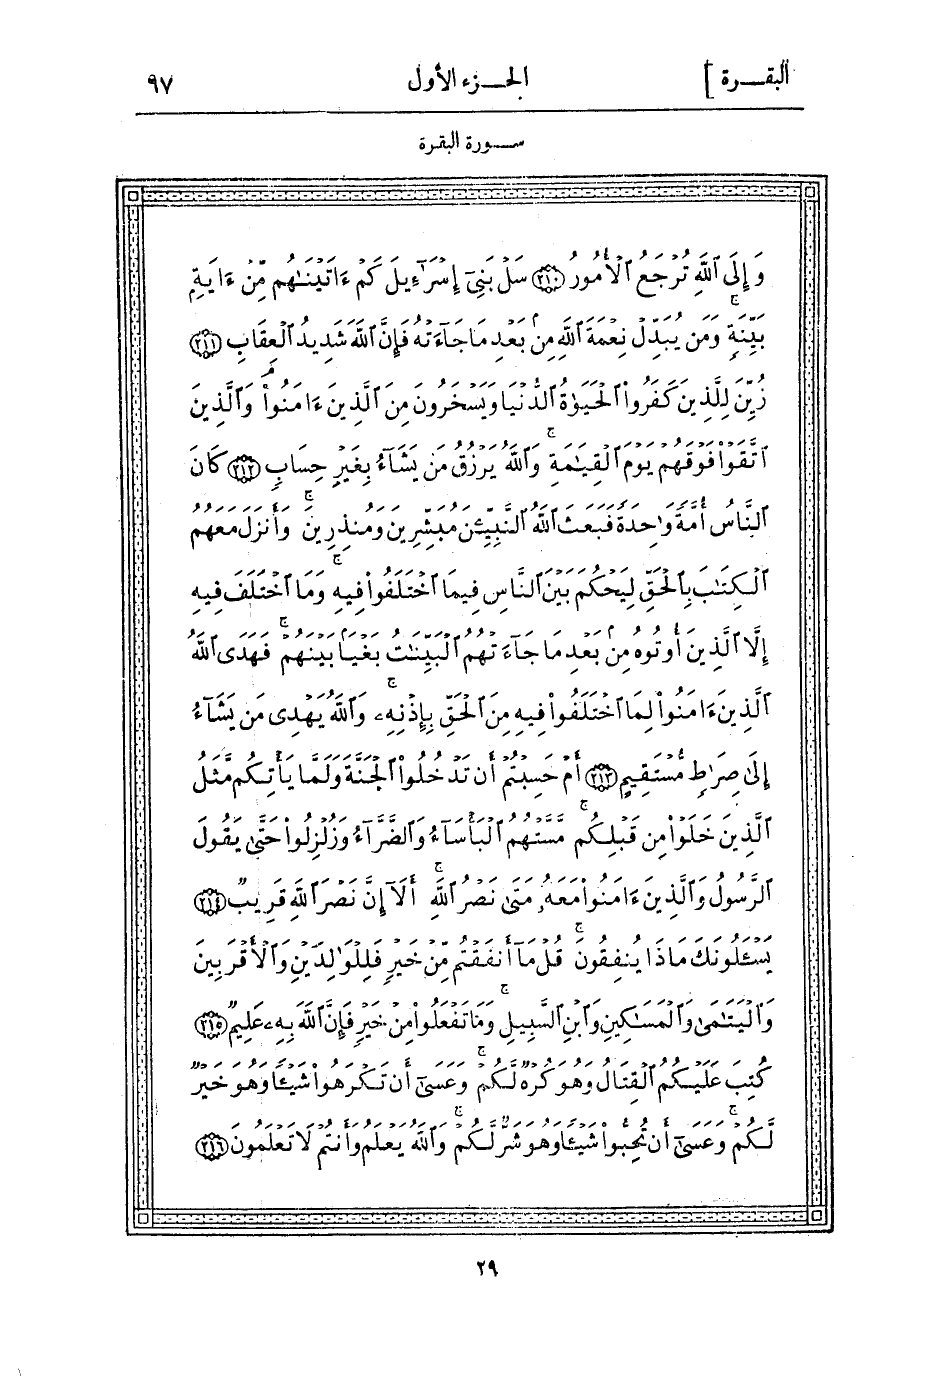 البقرة ] الجزء الأول ٩٧
سورة البقرة
وَإِلَى ٱللَّهِ تُرْجَعُ ٱلْأُمُورُ ﴿٢١٠﴾ سَلْ بَنِىٓ إِسْرَٰٓءِيلَ كَمْ ءَاتَيْنَٰهُم مِّنْ ءَايَةِۭ
بَيِّنَةٍۚ وَمَن يُبَدِّلْ نِعْمَةَ ٱللَّهِ مِنۢ بَعْدِ مَا جَآءَتْهُ فَإِنَّ ٱللَّهَ شَدِيدُ ٱلْعِقَابِ ﴿٢١١﴾
زُيِّنَ لِلَّذِينَ كَفَرُوا۟ ٱلْحَيَوٰةُ ٱلدُّنْيَا وَيَسْخَرُونَ مِنَ ٱلَّذِينَ ءَامَنُوا۟ۘ وَٱلَّذِينَ
ٱتَّقَوْا۟ فَوْقَهُمْ يَوْمَ ٱلْقِيَٰمَةِۚ وَٱللَّهُ يَرْزُقُ مَن يَشَآءُ بِغَيْرِ حِسَابٍ ﴿٢١٢﴾ كَانَ
ٱلنَّاسُ أُمَّةً وَٰحِدَةً فَبَعَثَ ٱللَّهُ ٱلنَّبِيِّـۧنَ مُبَشِّرِينَ وَمُنذِرِينَۚ وَأَنزَلَ مَعَهُمُ
ٱلْكِتَٰبَ بِٱلْحَقِّ لِيَحْكُمَ بَيْنَ ٱلنَّاسِ فِيمَا ٱخْتَلَفُوا۟ فِيهِۚ وَمَا ٱخْتَلَفَ فِيهِ
إِلَّا ٱلَّذِينَ أُوتُوهُ مِنۢ بَعْدِ مَا جَآءَتْهُمُ ٱلْبَيِّنَٰتُ بَغْيًۢا بَيْنَهُمْۚ فَهَدَى ٱللَّهُ
ٱلَّذِينَ ءَامَنُوا۟ لِمَا ٱخْتَلَفُوا۟ فِيهِ مِنَ ٱلْحَقِّ بِإِذْنِهِۦۚ وَٱللَّهُ يَهْدِى مَن يَشَآءُ
إِلَىٰ صِرَٰطٍ مُّسْتَقِيمٍ ﴿٢١٣﴾ أَمْ حَسِبْتُمْ أَن تَدْخُلُوا۟ ٱلْجَنَّةَ وَلَمَّا يَأْتِكُم مَّثَلُ
ٱلَّذِينَ خَلَوْا۟ مِن قَبْلِكُمۚ مَّسَّتْهُمُ ٱلْبَأْسَآءُ وَٱلضَّرَّآءُ وَزُلْزِلُوا۟ حَتَّىٰ يَقُولَ
ٱلرَّسُولُ وَٱلَّذِينَ ءَامَنُوا۟ مَعَهُۥ مَتَىٰ نَصْرُ ٱللَّهِۚ أَلَآ إِنَّ نَصْرَ ٱللَّهِ قَرِيبٌ ﴿٢١٤﴾
يَسْـَٔلُونَكَ مَاذَا يُنفِقُونَۚ قُلْ مَآ أَنفَقْتُم مِّنْ خَيْرٍ فَلِلْوَٰلِدَيْنِ وَٱلْأَقْرَبِينَ
وَٱلْيَتَٰمَىٰ وَٱلْمَسَٰكِينِ وَٱبْنِ ٱلسَّبِيلِۚ وَمَا تَفْعَلُوا۟ مِنْ خَيْرٍ فَإِنَّ ٱللَّهَ بِهِۦ عَلِيمٌ ﴿٢١٥﴾
كُتِبَ عَلَيْكُمُ ٱلْقِتَالُ وَهُوَ كُرْهٌ لَّكُمْۚ وَعَسَىٰٓ أَن تَكْرَهُوا۟ شَيْـًٔا وَهُوَ خَيْرٌ
لَّكُمْۚ وَعَسَىٰٓ أَن تُحِبُّوا۟ شَيْـًٔا وَهُوَ شَرٌّ لَّكُمْۚ وَٱللَّهُ يَعْلَمُ وَأَنتُمْ لَا تَعْلَمُونَ ﴿٢١٦﴾
٢٩